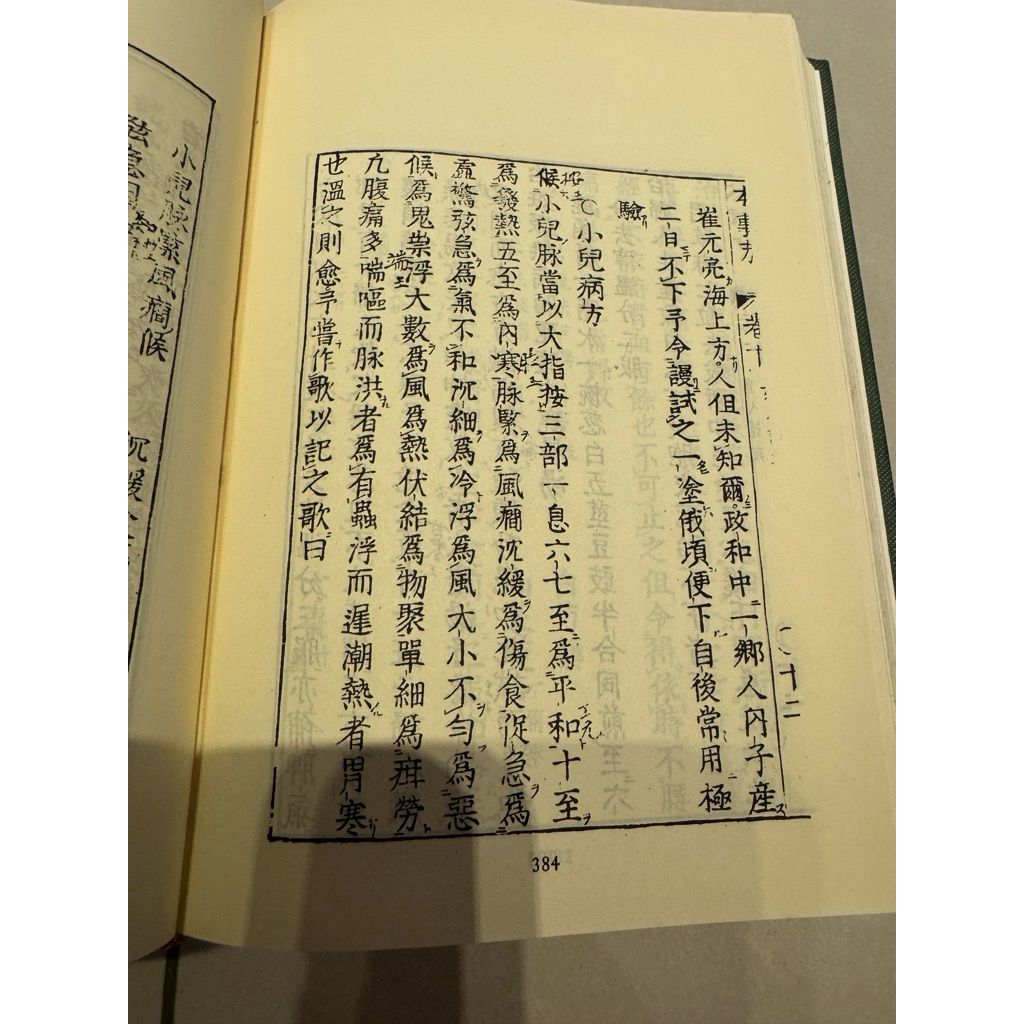 本事方 卷十
十二
崔元亮海上方人但未知爾政和中一鄉人內子產
二日不下予令謾試之一塗俄頃便下自後常用極
驗
○小兒病方
候小兒脉當以大指按三部一息六七至爲平和十至
爲發熱五至爲內寒脉緊爲風癇沈緩爲傷食促急爲
虛驚弦急爲氣不和沉細爲冷浮爲風大小不勻爲惡
候爲鬼祟浮大數爲風爲熱伏結爲物聚單細爲疳勞
凢腹痛多喘嘔而脉洪者爲有蟲浮而遲潮熱者胃寒
也溫之則愈予嘗作歌以記之歌曰
384
小兒脉緊風癇候 沉緩
弦急因知